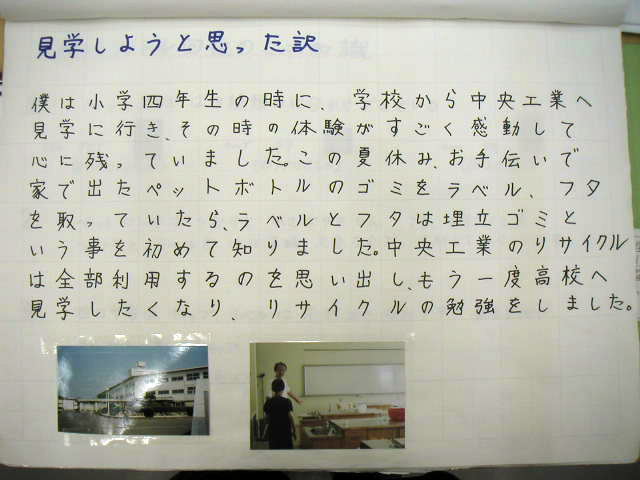 見学しようと思った訳
僕は小学四年生の時に、学校から中央工業へ
見学に行き、その時の体験がすごく感動して
心に残っていました。この夏休み、お手伝いで
家で出たペットボトルのゴミをラベル、フタ
を取っていたら、ラベルとフタは埋立ゴミと
いう事を初めて知りました。中央工業のリサイクル
は全部利用するのを思い出し、もう一度高校へ
見学したくなり、リサイクルの勉強をしました。